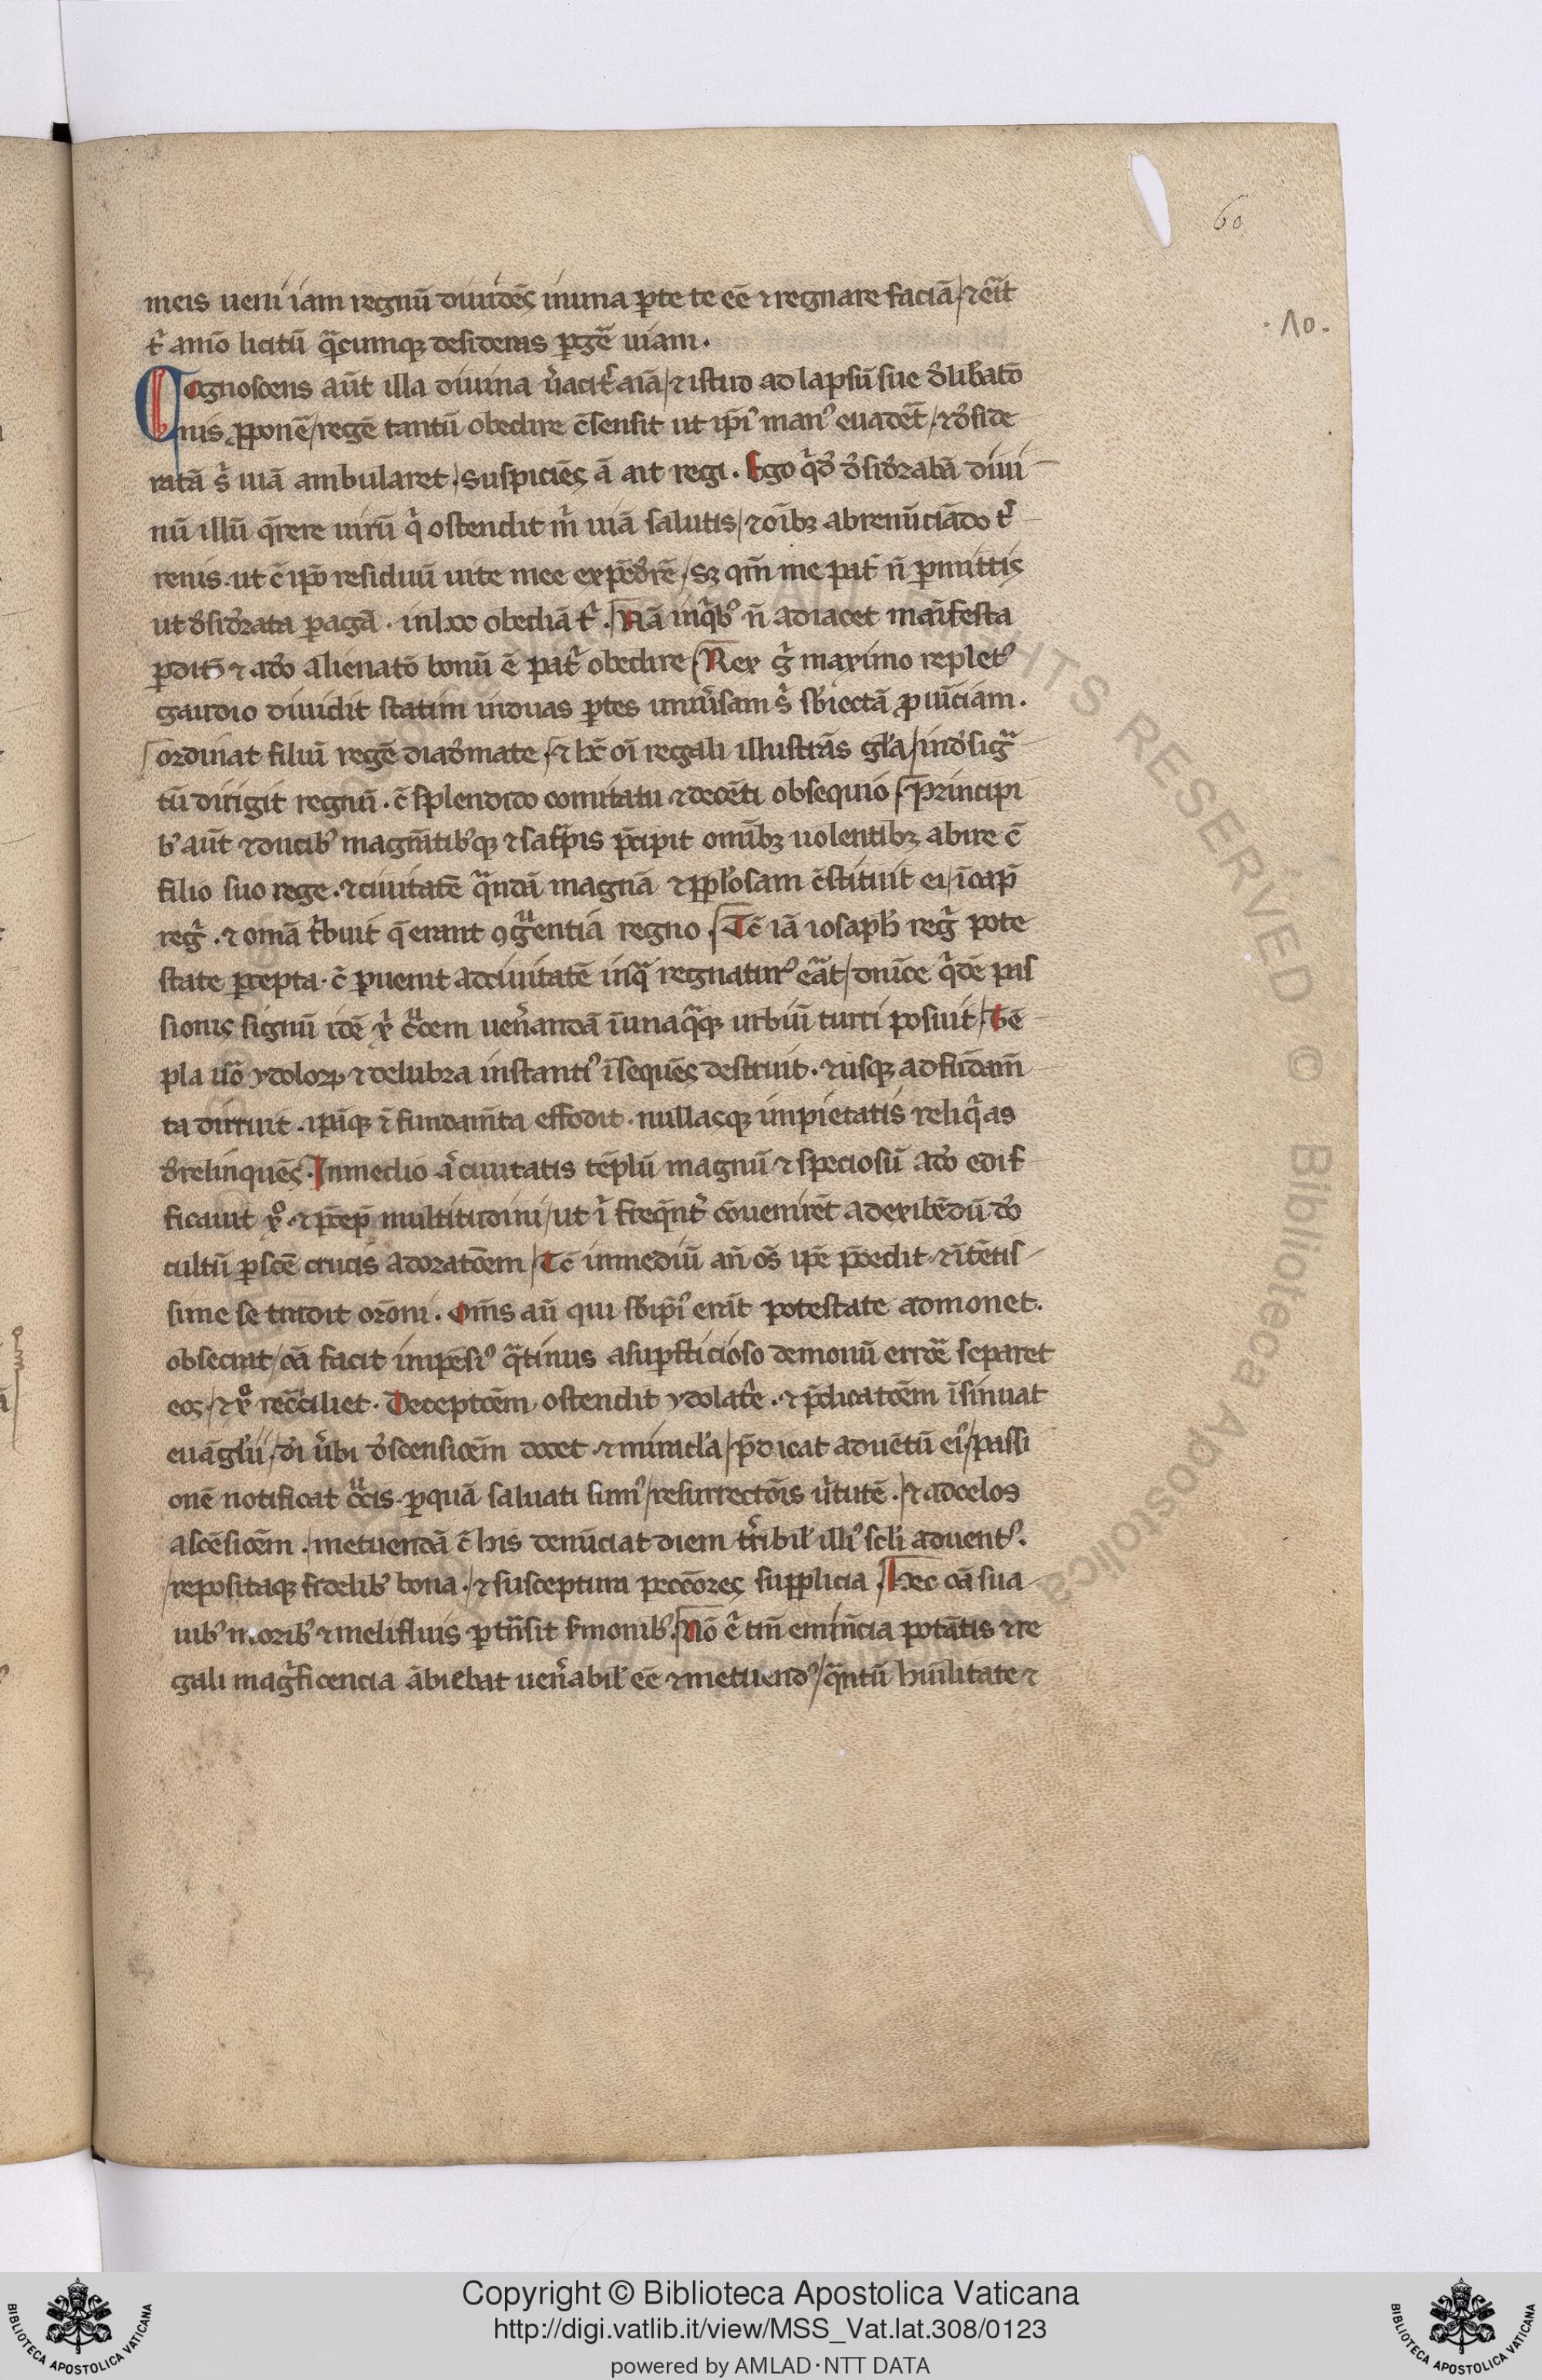 60
.10.
meis ueni iam regnū diuidēs inuna ꝑte te eē ⁊ regnare faciā / ⁊ eīt
t̓ amō licitū qᵃcumqꝫ desideras ꝑgē uiam.
Cognoscens aūt illa diuina ūacit̓ aīa / ⁊ istud ad lapsū sue dēlibatō
nis ꝓponē / regē tantū obedire c̄sensit ut ip̄i᾽ man᾽ euadēt / ⁊ dēside
ratā s̓ uiā ambularet / suspiciēs ā ait regi. Ego qⁱd dēsidērabā diui
nū illū q̄rere uirū qⁱ ostendit m̄ uiā salutis / ⁊ oībꝫ abrenūciādo t̓
renis. ut c̄ ip̄o residuū uite mee / sꝫ qm̄ me pat̓ n̄ ꝑmittis
ut dēsidērata ꝑagā . inhoc obediā t̓ . Nā inqⁱb᾽ n̄ adiacet maīfesta
ꝑditō ⁊ adō alienatō bonū ē pat̓ obedire . Rex g̓ maximo replet᾽
gaudio diuidit statim induas ꝑtes uniūsam s̓ sb̄iectā ꝓuīciam.
ordinat filiū regē diadēmate . ⁊ hc̄ oī regali illustrās gl̄a /
tū dirigit regnū . c̄ splendido comitatu ⁊ decēti obsequio . Principi
b᾽ aūt ⁊ ducib᾽ magnātib᾽qꝫ ⁊ sat̓pis p̄cipit omībꝫ uolentibꝫ abire c̄
filio suo rege . ⁊ ciuitatē qᵃndā magnā ⁊ pp̄losam c̄stituit ei /
reg̓ . ⁊ omā t̓buit q̄ erant ꝯgᵘentia regno . Tc̄ iā iosaph̄ reg̓ pote
state ꝑcepta . c̄ ꝑuenit adciuitatē inqᵃ regnatur᾽ eᵃt / dnīce qⁱdē pas
sionis signū idē xⁱ cᵘcem uen̄andā īunaqᵃqꝫ urbiū turri posuit / Tē
pla ūo ydoloꝝ ⁊ delubra instanti᾽ īsequēs destruit . ⁊ usqꝫ adfūdam̄
ta diruit . ipāqꝫ ī fundam̄ta effodit . nullasqꝫ impietatis reliqⁱas
dērelinquēs . Inmedio ā ciuitatis tēplū magnū ⁊ speciosū adō edif
ficauit xᵒ . ⁊ p̄cep̄ multitudini / ut ī freq̄nt̓ cōuenirēt adexibēdū dō
cultū ꝑ scē crucis adoratōem / Tc̄ inmediū an̄ os̄ ipē p̄cedit ⁊ ītētis
sime se tradit orōni . Om̄s aū qui sb̄ ip̄i᾽ erāt potestate admonet.
obsecrat / oā facit impēsi᾽ qᵃtinus asuꝑsticioso demonū errōe separet
eos / ⁊ xᵒ recc̄iliet . Deceptōem ostendit ydolat̓e . ⁊ p̄dicatōem īsinuat
euāgl̄ii / dī ūbi dēscensiōem docet ⁊ miracl̄a / p̄dicat aduētū ei᾽ / passi
onē notificat cᵘcis . ꝑquā saluati sum᾽ / resurrectōis ūtutē . ⁊ adcelos
ascēsiōem . metuendā c̄ his denūciat diem t̓ribil̄ illi᾽ scl̄i aduent᾽ .
repositaqꝫ fidelib᾽ bona . ⁊ susceptura peccōres supplicia . Hec oā sua
uib᾽ morib᾽ ⁊ melifluis ꝑt̄nsit s̄monib᾽ . Nō ē tm̄ emīncia potātis ⁊ re
gali magⁱficencia ābiebat uen̄abil̄ eē ⁊ metuend᾽ / qᵃntū hūilitate ⁊
Copyright © Biblioteca Apostolica Vaticana
http://digi.vatlib.it/view/MSS_Vat.lat.308/0123
powered by AMLAD·NTT DATA
BIBLIOTECA APOSTOLICA VATICANA
BIBLIOTECA APOSTOLICA VATICANA